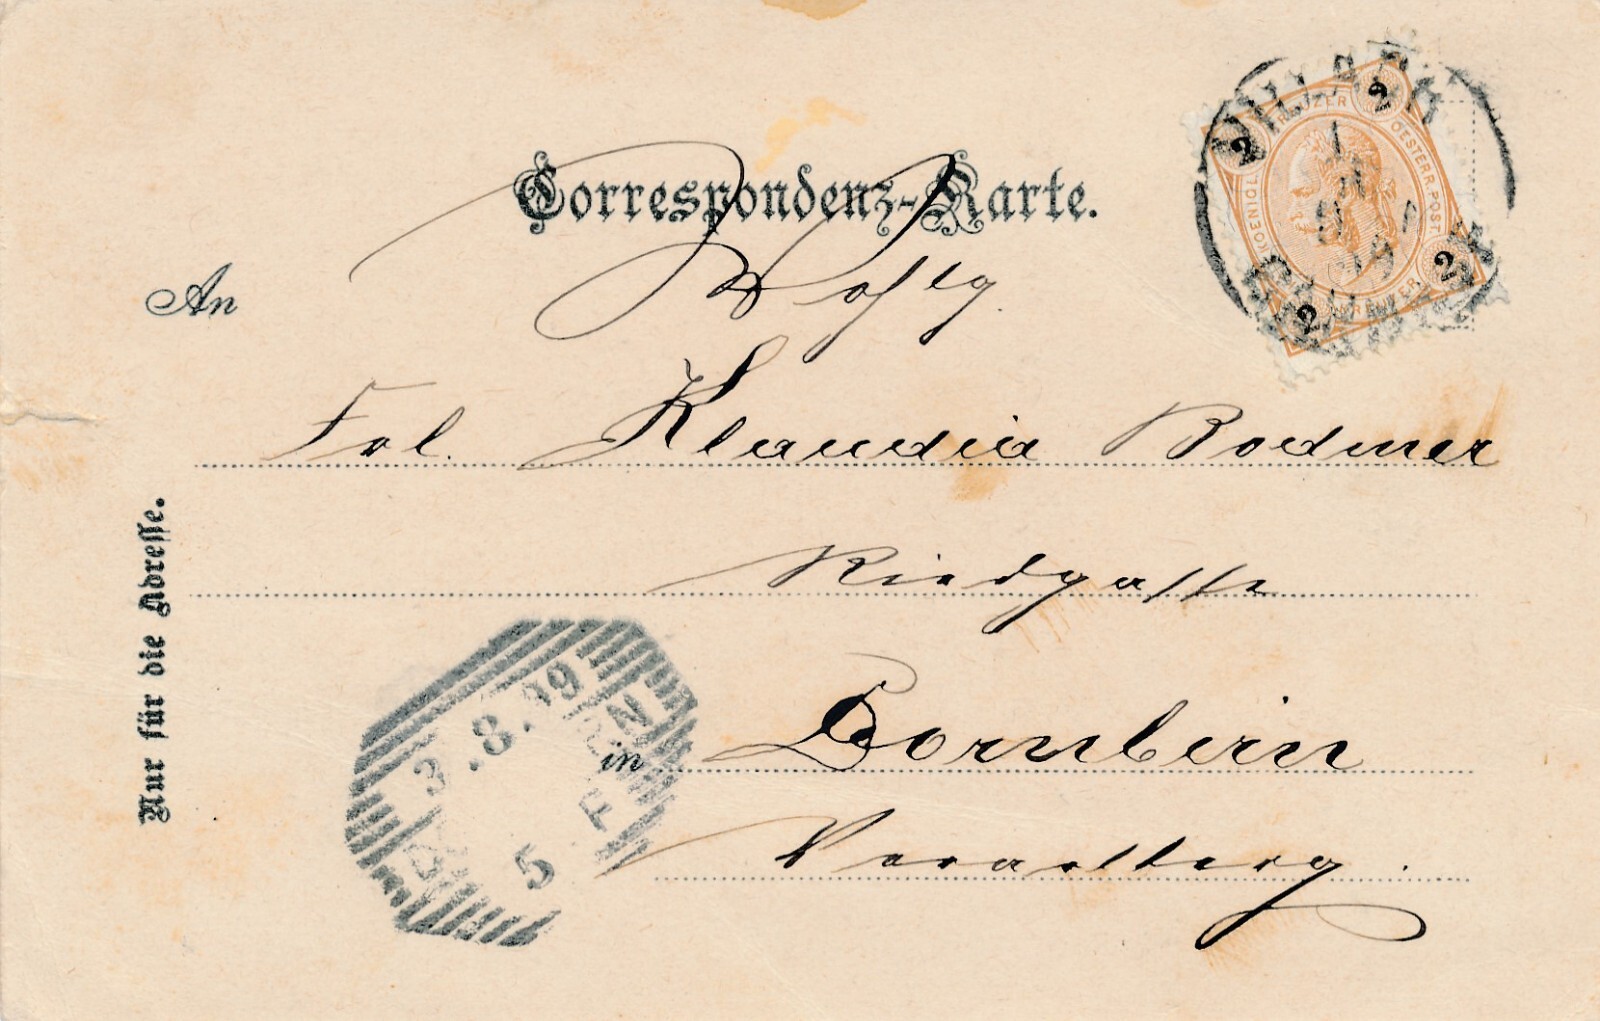 Correspondenz-Karte.
An
Wohlg.
Frl. Klaudia Bodmer
Riedgasse
in Dornbirn
Vorarlberg.
Nur für die Adresse.
2 2 2 2
KREUZER
OESTERR. POST.
KREUZER
3.8.99
5